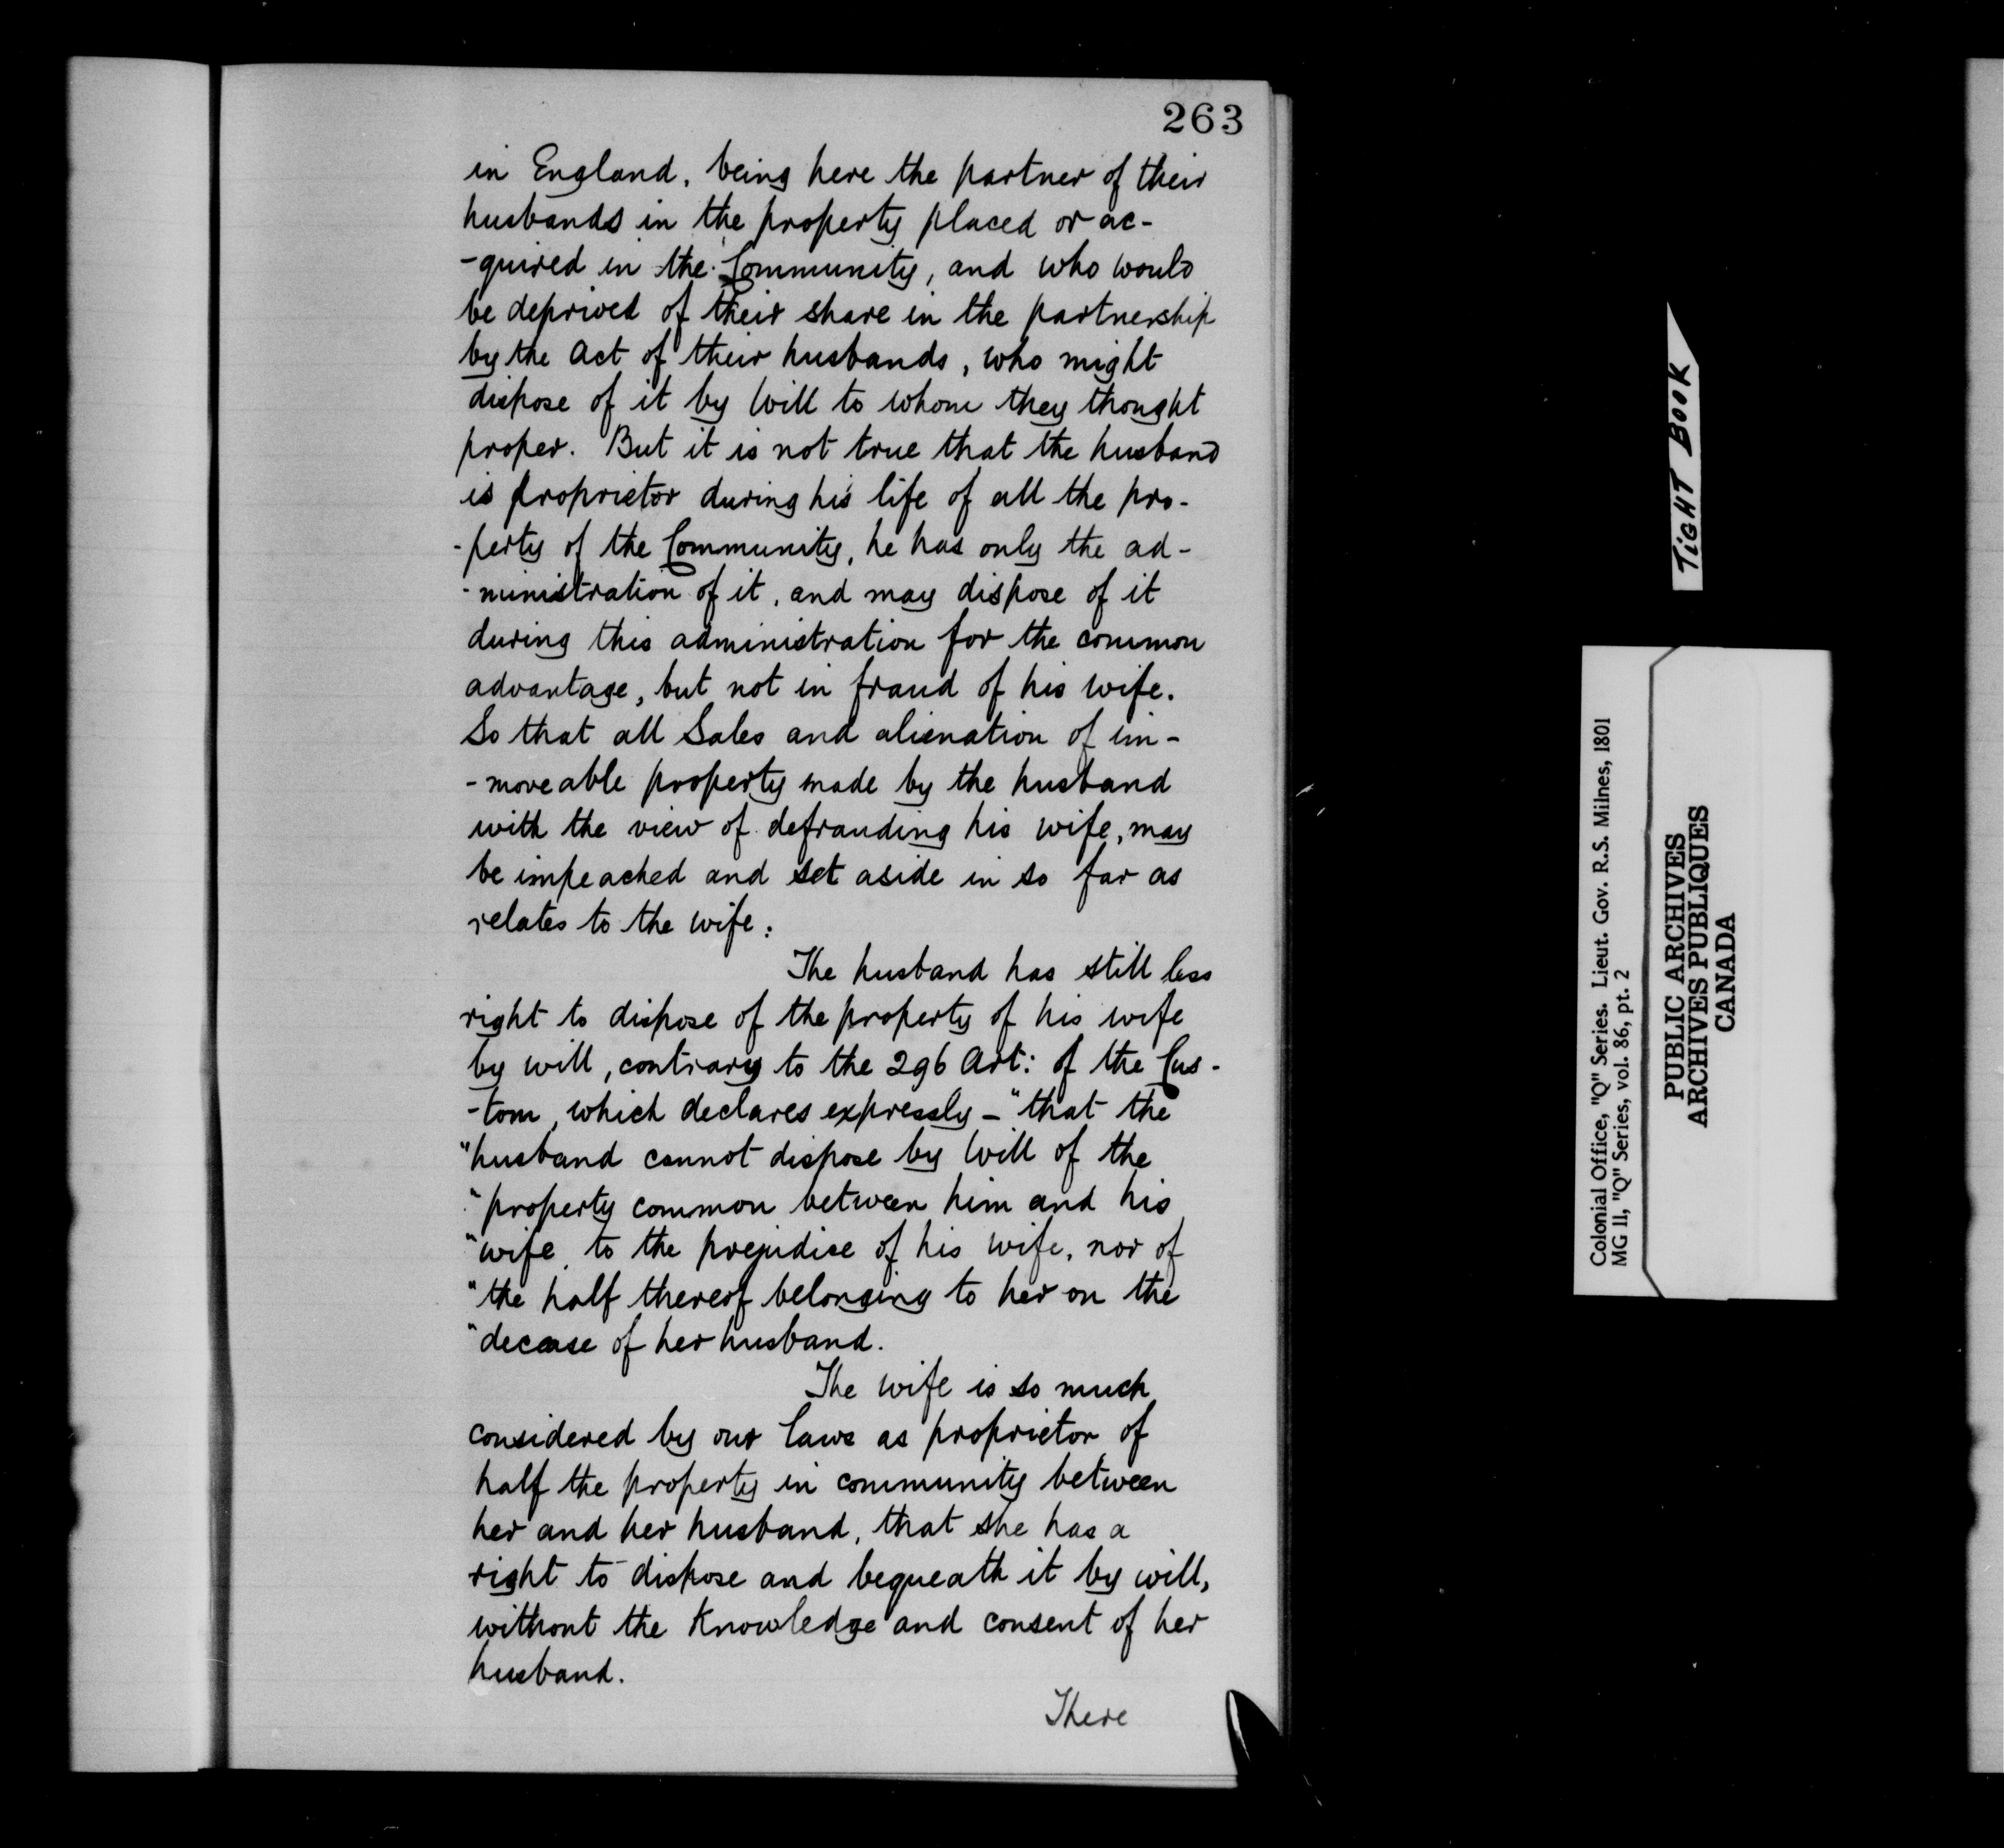 263
in England, being here the partner of their
husbands in the property placed or ac-
-quired in the Community, and who would
be deprived of their share in the partnership
by the Act of their husbands, who might
dispose of it by Will to whom they thought
proper. But it is not true that the husband
is proprietor during his life of all the pro-
-perty of the Community, he has only the ad-
-ministration of it, and may dispose of it
during this administration for the common
advantage, but not in fraud of his wife.
So that all Sales and alienation of im-
-moveable property made by the husband
with the view of defrauding his wife, may
be impeached and set aside in so far as
relates to the wife.
The husband has still less
right to dispose of the property of his wife
by will, contrary to the 296 Art: of the Cus-
-tom, which declares expressly - "that the
"husband cannot dispose by Will of the
"property common between him and his
"wife, to the prejudice of his wife, nor of
"the half thereof belonging to her on the
"decease of her husband.
The wife is so much
considered by our Laws as proprietor of
half the property in community between
her and her husband, that she has a
right to dispose and bequeath it by will,
without the Knowledge and consent of her
husband.
There
TIGHT BOOK
Colonial Office, "Q" Series. Lieut. Gov. R.S. Milnes, 1801
MG 11, "Q" Series, vol. 86, pt. 2
PUBLIC ARCHIVES
ARCHIVES PUBLIQUES
CANADA